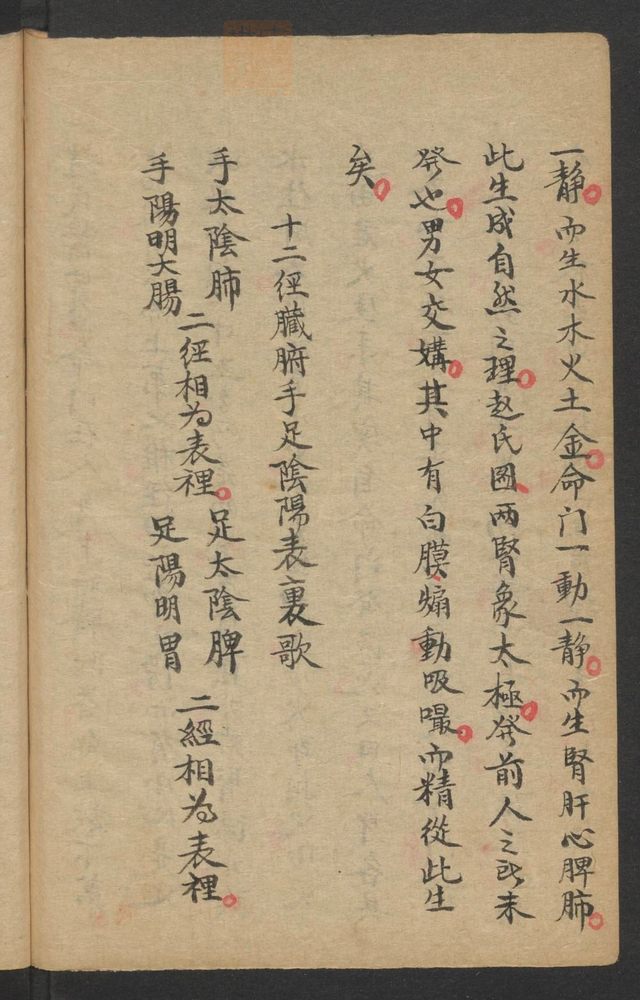 一静而生水木火土金命门一動一静而生腎肝心脾肺
此生成自然之理赵氏圖两腎象太極發前人之所未
發也男女交媾其中有白膜煽動吸嘬而精從此生
矣
十二徑臟腑手足陰陽表裏歌
手太陰肺
手陽明大腸
二徑相为表裡
足太陰脾
足陽明胃
二經相为表裡